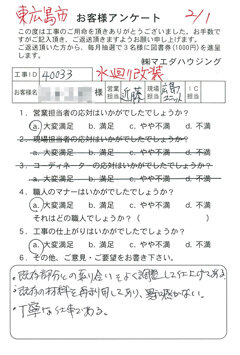 東広島市 お客様アンケート 2/1
この度は工事のご用命を頂きありがとうございました。お手数で
すがご記入頂き、ご返送頂きますようお願い申し上げます。
ご返送頂いた方から、毎月抽選で3名様に図書券(1000円)を進呈
します。
㈱マエダハウジング
工事ID 40033 水廻り改装
お客様名 様 営業担当 近藤 現場担当 広島 IC担当
1. 営業担当者の応対はいかがでしたでしょうか?
a. 大変満足 b. 満足 c. やや不満 d. 不満
2. 現場担当者の応対はいかがでしたでしょうか?
a. 大変満足 b. 満足 c. やや不満 d. 不満
3. コーディネーターの応対はいかがでしたでしょうか?
a. 大変満足 b. 満足 c. やや不満 d. 不満
4. 職人のマナーはいかがでしたでしょうか?
a. 大変満足 b. 満足 c. やや不満 d. 不満
それはどの職人でしょうか?( )
5. 工事の仕上がりはいかがでしたでしょうか?
a. 大変満足 b. 満足 c. やや不満 d. 不満
6. その他、ご意見・ご要望をお書き下さい。
・既存部分との取り合いをよく調整して仕上げてある。
・既存の材料を再利用しており、
・丁寧な仕事である。